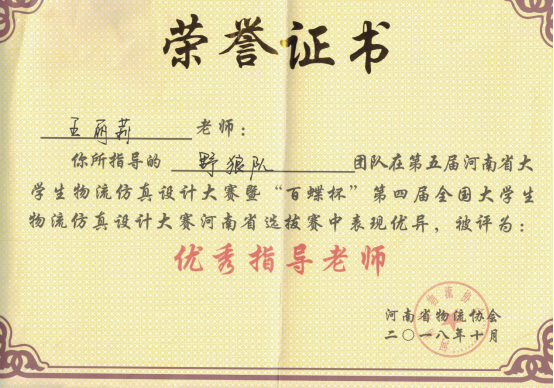 荣誉证书
王丽莉 老师：
你所指导的 野狼队 团队在第五届河南省大
学生物流仿真设计大赛暨“百蝶杯”第四届全国大学生
物流仿真设计大赛河南省选拔赛中表现优异，被评为：
优秀指导老师
河南省物流协会
二〇一八年十月